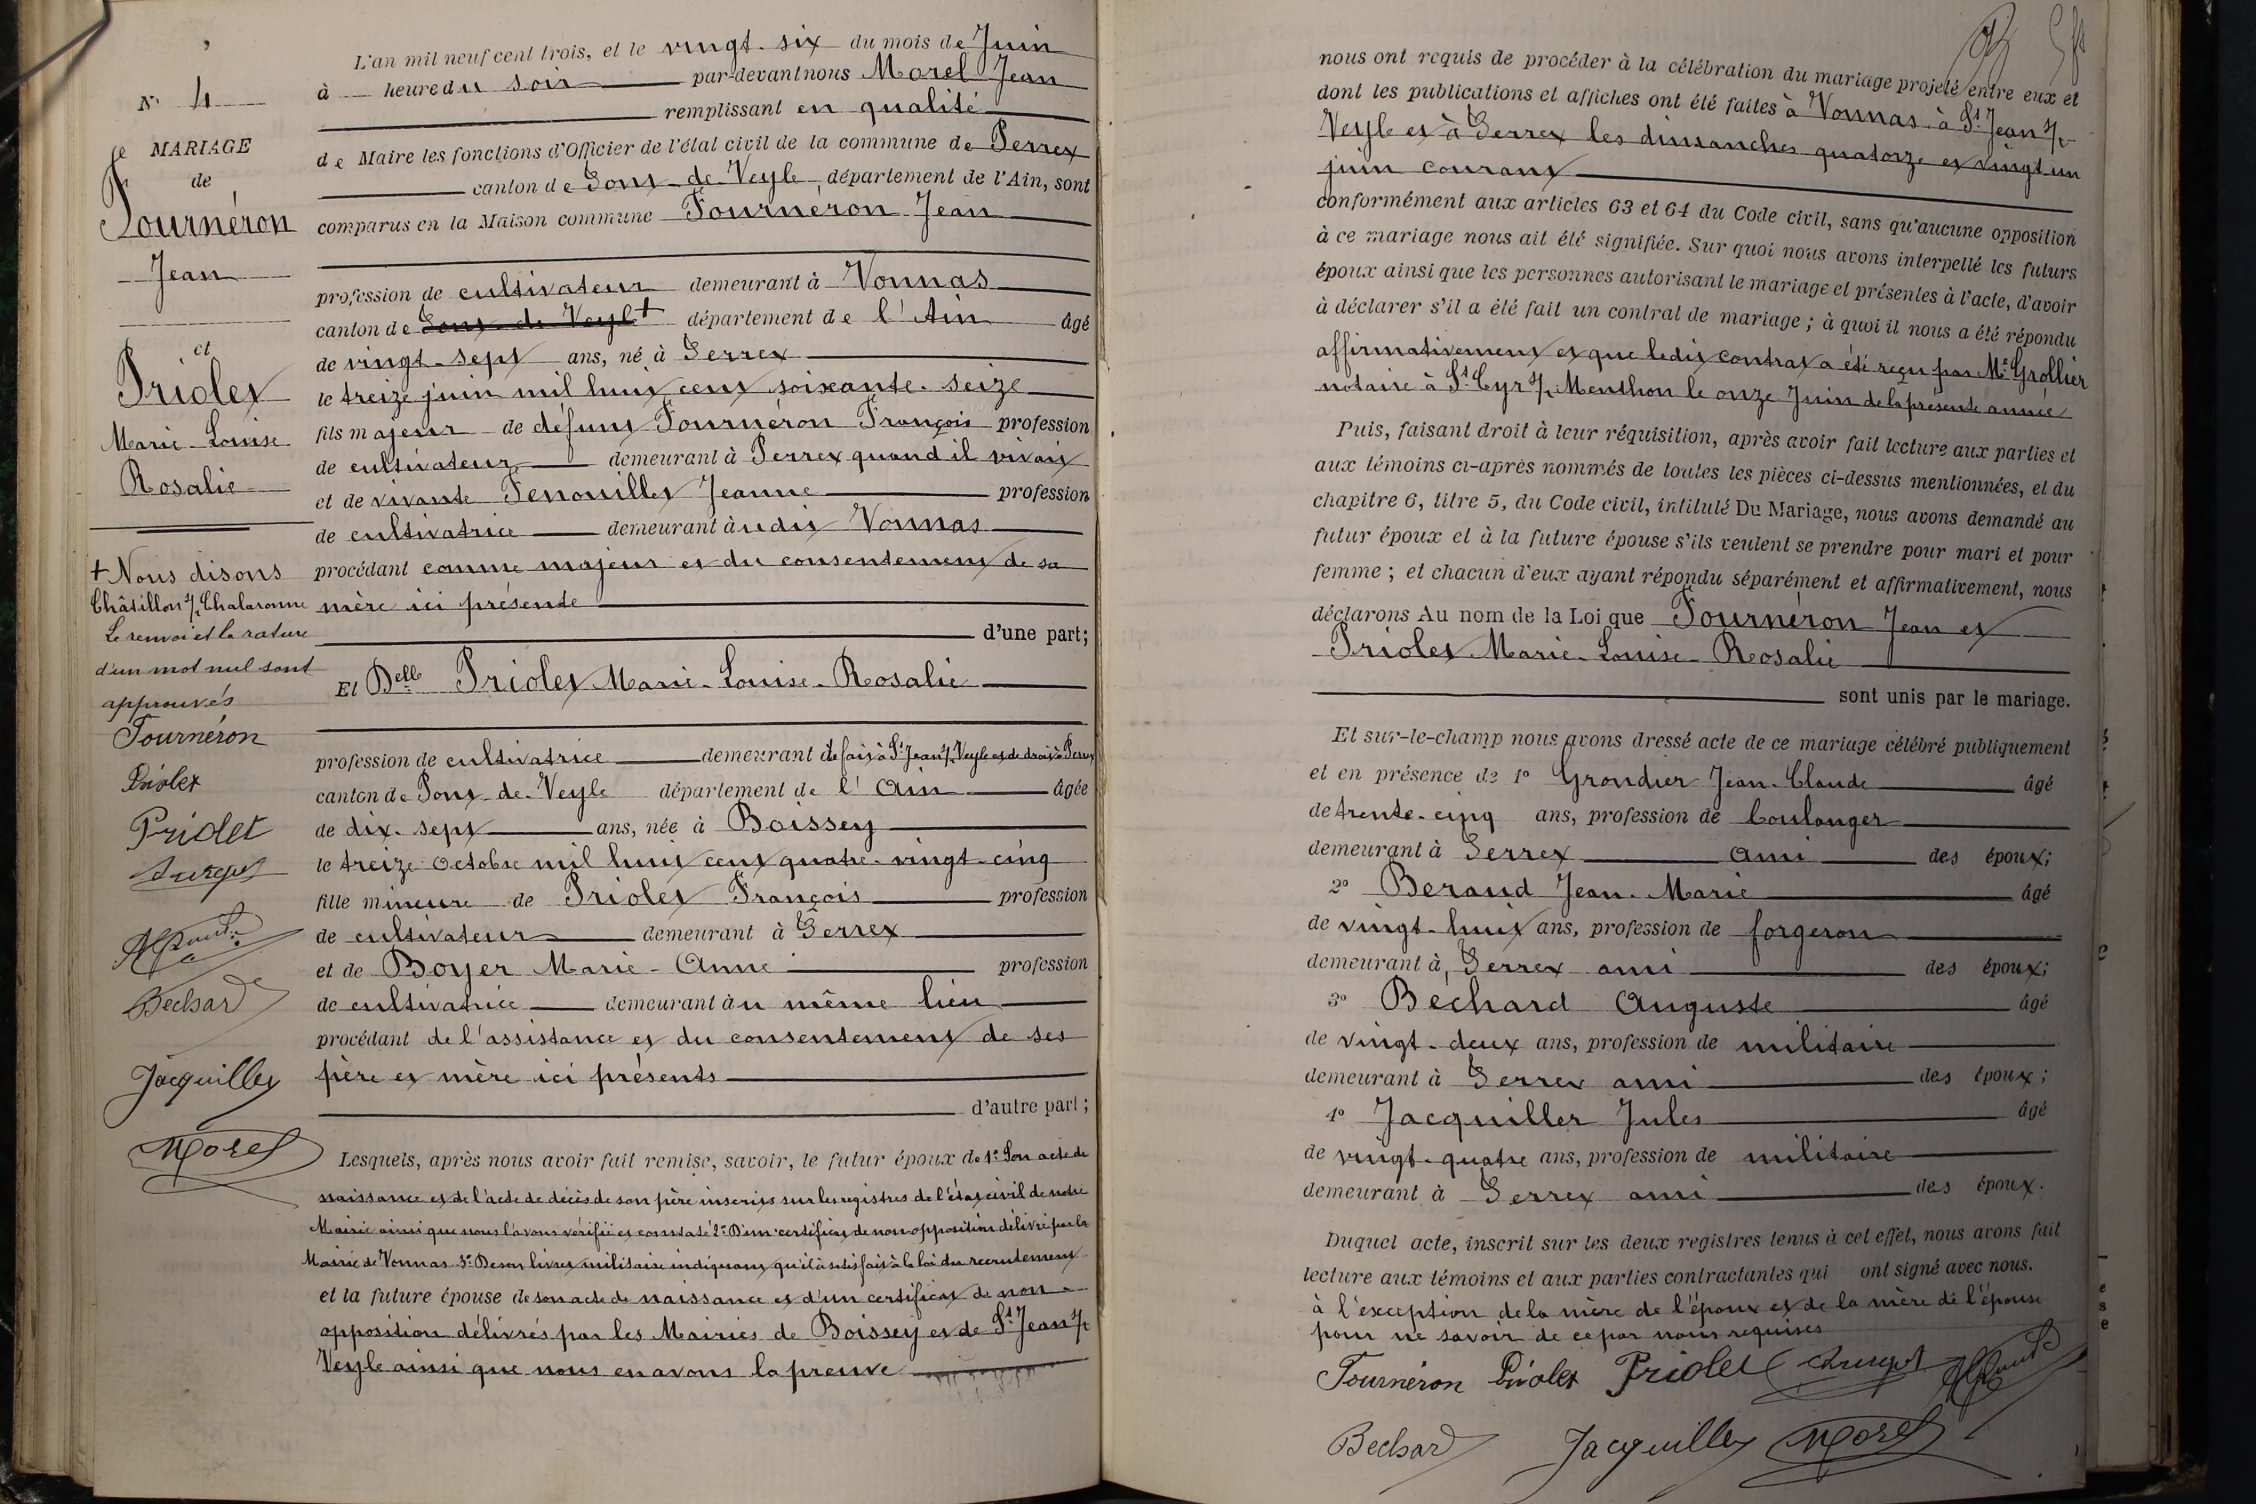 N° 4
MARIAGE
de
Fournéron
Jean
et
Priolet
Marie-Louise
Rosalie
+ Nous disons
Châtillon s/ Chalaronne
Le renvoi et la rature
d'un mot nul sont
approuvés
Fournéron
Priolet
Priolet
Bechard
Jacquillet
Morel
L'an mil neuf cent trois, et le vingt-six du mois de Juin
à heure du soir par-devant nous Morel Jean
remplissant en qualité
de Maire les fonctions d'Officier de l'état civil de la commune de Perrex
canton de Pont-de-Veyle, département de l'Ain, sont
comparus en la Maison commune Fourneron Jean
profession de cultivateur demeurant à Vonnas
canton de Pont-de-Veyle + département de l'Ain âgé
de vingt-sept ans, né à Perrex
le treize juin mil huit cent soixante-seize
fils majeur de défunt Fournéron François profession
de cultivateur demeurant à Perrex quand il vivait
et de vivante Fenouillet Jeanne profession
de cultivatrice demeurant àudit Vonnas
procédant comme majeur et du consentement de sa
mère ici présente
d'une part;
Et Delle Priolet Marie-Louise-Rosalie
profession de cultivatrice demeurant de fait à St Jean s/ Veyle et de droit à Perrex
canton de Pont-de-Veyle département de l'Ain âgée
de dix-sept ans, née à Boissey
le treize octobre mil huit cent quatre-vingt-cinq
fille mineure de Priolet François profession
de cultivateur demeurant à Perrex
et de Boyer Marie-Anne profession
de cultivatrice demeurant àu même lieu
procédant de l'assistance et du consentement de ses
père et mère ici présents
d'autre part;
Lesquels, après nous avoir fait remise, savoir, le futur époux de 1° Son acte de
naissance et de l'acte de décès de son père inscrits sur les registres de l'état civil de notre
Mairie ainsi que nous l'avons vérifié et constaté 2° D'un certificat de non opposition délivré par la
Mairie de Vonnas 3° De son livret militaire indiquant qu'il a satisfait à la loi du recrutement
et la future épouse de son acte de naissance et d'un certificat de non-
opposition délivrés par les Mairies de Boissey et de St Jean s/
Veyle ainsi que nous en avons la preuve
nous ont requis de procéder à la célébration du mariage projeté entre eux et
dont les publications et affiches ont été faites à Vonnas à St Jean s/
Veyle et à Perrex les dimanches quatorze et vingt-un
juin courant
conformément aux articles 63 et 64 du Code civil, sans qu'aucune opposition
à ce mariage nous ait été signifiée. Sur quoi nous avons interpellé les futurs
époux ainsi que les personnes autorisant le mariage et présentes à l'acte, d'avoir
à déclarer s'il a été fait un contrat de mariage; à quoi il nous a été répondu
affirmativement et que ledit contrat a été reçu par Me Grollier
notaire à St Cyr s/ Menthon le onze Juin de la présente année
Puis, faisant droit à leur réquisition, après avoir fait lecture aux parties et
aux témoins ci-après nommés de toutes les pièces ci-dessus mentionnées, et du
chapitre 6, titre 5, du Code civil, intitulé Du Mariage, nous avons demandé au
futur époux et à la future épouse s'ils veulent se prendre pour mari et pour
femme; et chacun d'eux ayant répondu séparément et affirmativement, nous
déclarons Au nom de la Loi que Fournéron Jean et
Priolet Marie-Louise-Rosalie
sont unis par le mariage.
Et sur-le-champ nous avons dressé acte de ce mariage célébré publiquement
et en présence de 1° Grondier Jean-Claude âgé
de trente-cinq ans, profession de boulanger
demeurant à Perrex ami des époux;
2° Beraud Jean-Marie âgé
de vingt-huit ans, profession de forgeron
demeurant à Perrex ami des époux;
3° Béchard Auguste âgé
de vingt-deux ans, profession de militaire
demeurant à Perrex ami des époux;
4° Jacquiller Jules âgé
de vingt-quatre ans, profession de militaire
demeurant à Perrex ami des époux.
Duquel acte, inscrit sur les deux registres tenus à cet effet, nous avons fait
lecture aux témoins et aux parties contractantes qui ont signé avec nous.
à l'exception de la mère de l'époux et de la mère de l'épouse
pour ne savoir de ce par nous requises
Fournéron Priolet Priolet
Bechard Jacquillet Morel